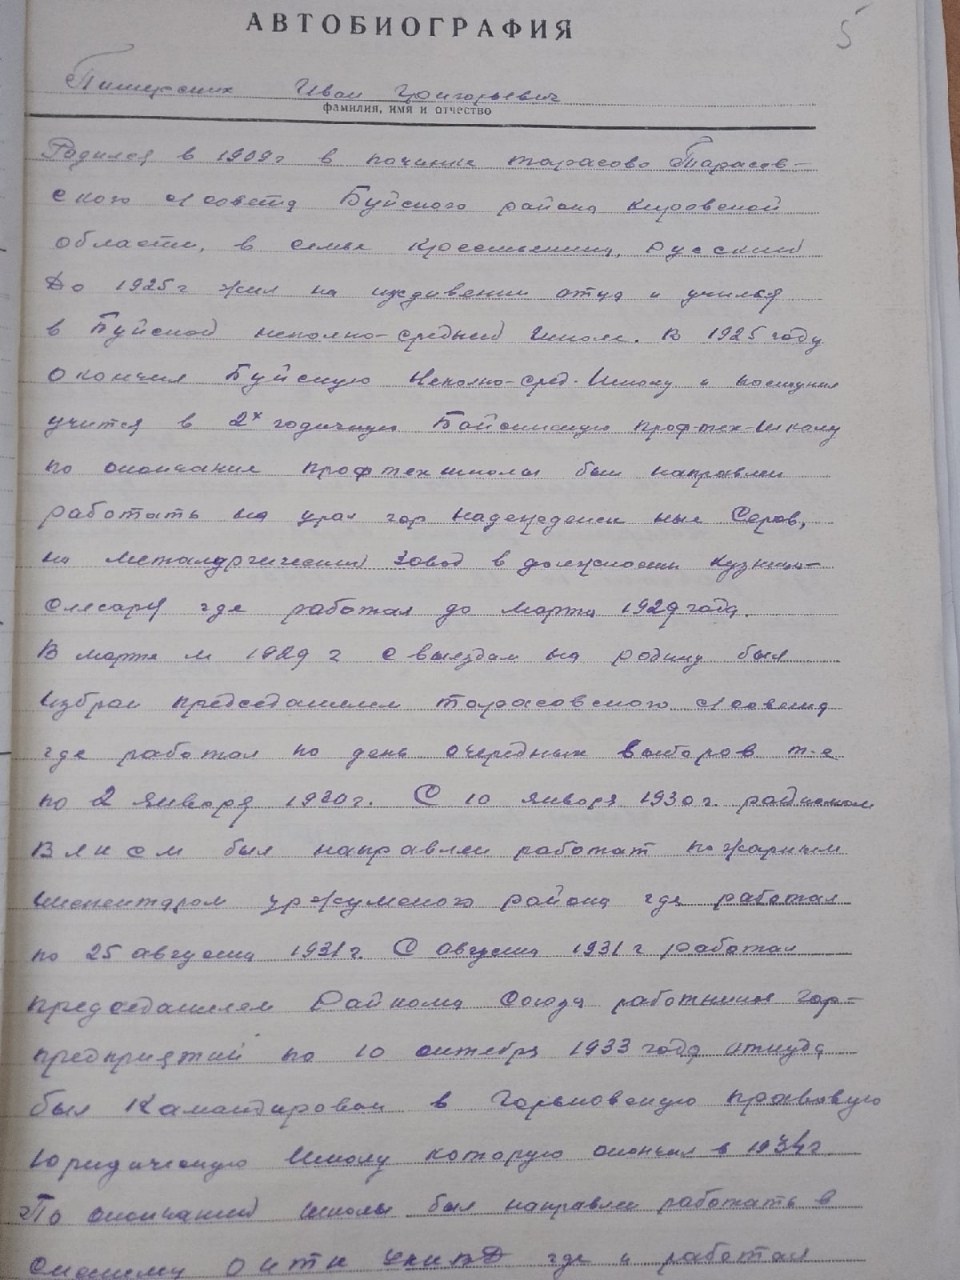 АВТОБИОГРАФИЯ
5
Иван Григорьевич
фамилия, имя и отчество
Родился в 1909 г в починке тарасово Тарасов-
ского с/совета Буйского района кировской
области, в семье крестьянина, русский
До 1925 г жил на иждивении отца и учился
в Буйской неполно-средней школе. В 1925 году
окончил Буйскую Неполно-сред. Школу и поступил
учится в 2х годичную профтех-школу
по окончание профтехшколы был направлен
работать на урал гор надеждинск ныне Серов,
на металургический завод в должности кузнеца-
слесаря где работал до марта 1929 года.
В марте м 1929 г с выездом на родину был
избран председателем тарасовского с/совета
где работал по день очередных выборов т-е
по 2 января 1930 г. С 10 января 1930 г.
был направлен работат пожарным
уржумского района где работал
по 25 августа 1931 г. С августа 1931 г работал
председателем Райкома Союза работников гор-
предприятий по 10 октября 1933 года откуда
был Камандирован в Горьковскую правовую
Юридическую Школу которую окончил в 1934 г.
По окончаний школы был направлен работать в
где и работал